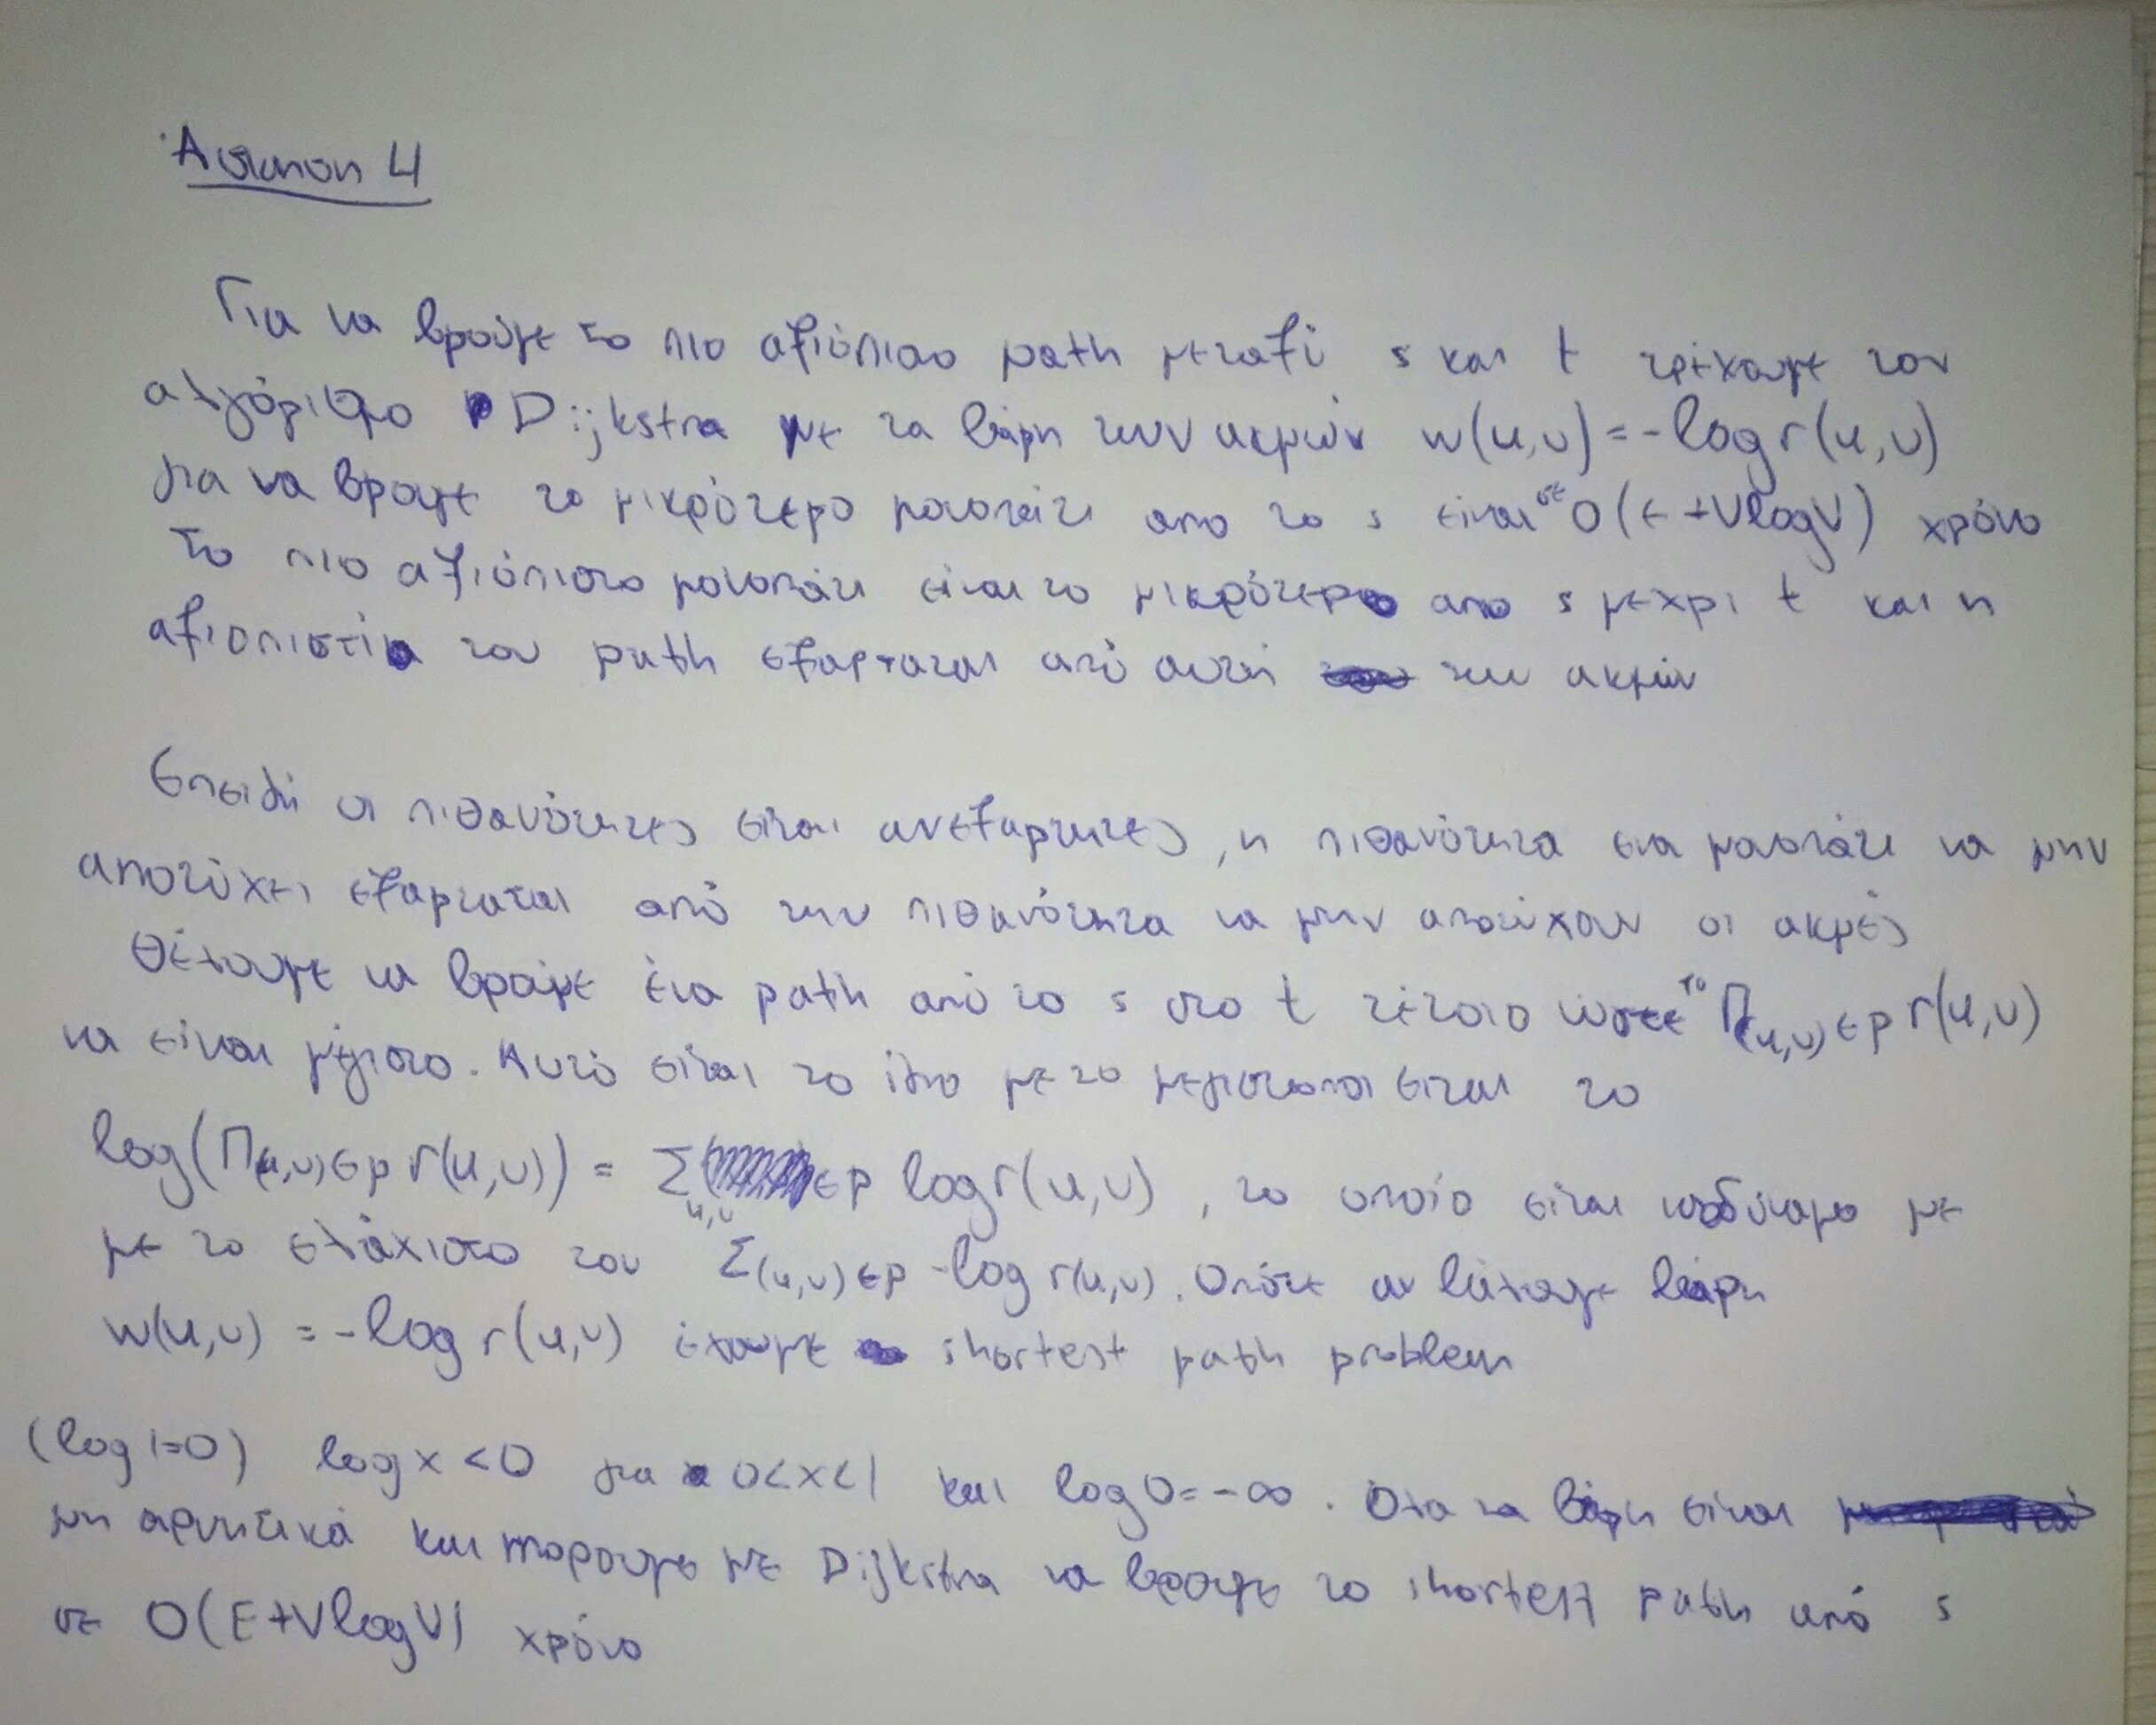 Άσκηση 4
Για να βρούμε το πιο αξιόπιστο path μεταξύ s και t τρέχουμε τον
αλγόριθμο Dijkstra με τα βάρη των ακμών w(u,v) = -log r(u,v)
για να βρουμε το μικρότερο μονοπάτι απο το s είναι σε O(E+VlogV) χρόνο
Το πιο αξιόπιστο μονοπάτι είναι το μικρότερο απο s μεχρι t και η
αξιοπιστία του path εξαρταται από αυτή των ακμών
Επειδή οι πιθανότητες είναι ανεξαρτητες, η πιθανότητα ενα μονοπάτι να μην
αποτύχει εξαρταται από την πιθανότητα να μην αποτύχουν οι ακμές
Θέλουμε να βρούμε ένα path από το s στο t τέτοιο ώστε το Π(u,v)∈p r(u,v)
να είναι μέγιστο. Αυτό είναι το ίδιο με το μεγιστοποιείται το
log(Π(u,v)∈p r(u,v)) = Σ u,v ∈p log r(u,v), το οποίο είναι ισοδύναμο με
με το ελάχιστο του Σ(u,v)∈p -log r(u,v). Οπότε αν βάλουμε βάρη
w(u,v) = -log r(u,v) έχουμε shortest path problem
(log1=0) log x < 0 για 0<x<1 και log0=-∞. Όλα τα βάρη είναι
μη αρνητικά και μπορουμε με Dijkstra να βρουμε το shortest path από s
σε O(E+VlogV) χρόνο